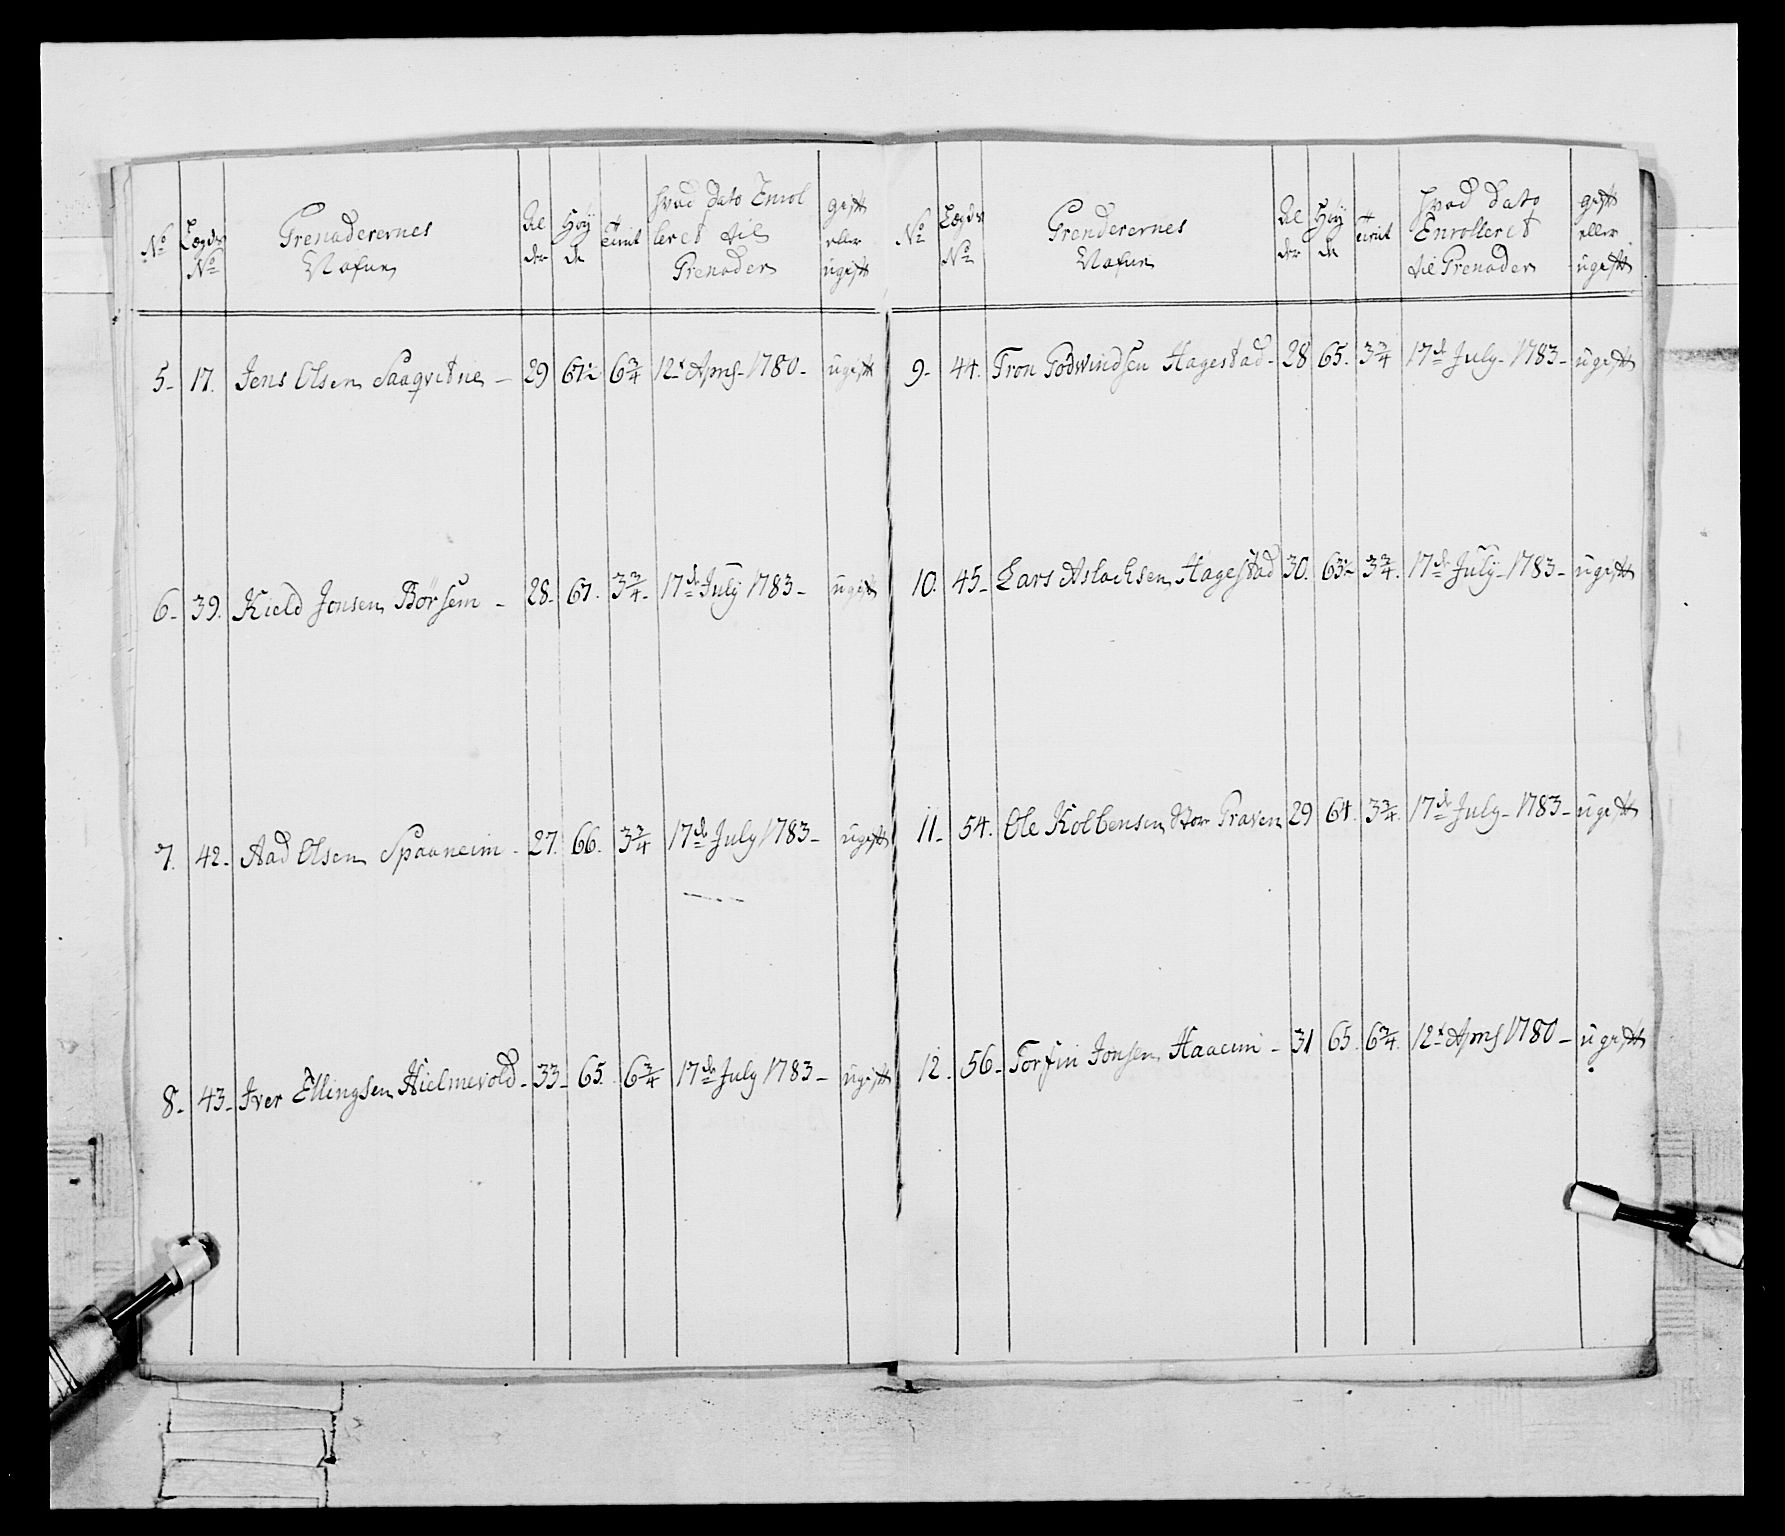 No
Lægds No
Grenaderernes Nafne
Al der
Høy de
tient
hvad Dato Enrol leret til Grenader
gift eller ugift
5 - 17. Jens Olsen Saaqvitne - 29 67½ 6¾ 12t Apris 1780 - ugift
6 - 39. Kield Jonsen Børsem - 28. 67. 3¾. 17de July 1783 - ugift
7. 42 - Aad Olsen Spaaneim - 27. 66. 3¾ 17de July 1783 - ugift
8 - 43 - Iver Ellingsen Hielmevold - 33 - 65. 6¾ 17de July 1783 - ugift
No
Lægds No
Grenderernes Nafne
Al der
Høy de
tient
hvad Dato Enrolleret til Grenader
gift eller ugift
9 - 44. Tron Godwindsen Hagestad - 28 65. 3¾ 17de July - 1783 - ugift
10. 45 - Lars Aslachsen Hagestad 30. 63½ 3¾. 17de July - 1783 - ugift
11 - 54. Ole Kolbensen Stor Graven 29 64. 3¾. 17de July - 1783 - ugift
12. 56 - Torfin Jonsen Haaeim - 31 65. 6¾. 12t Apris 1780 - ugift